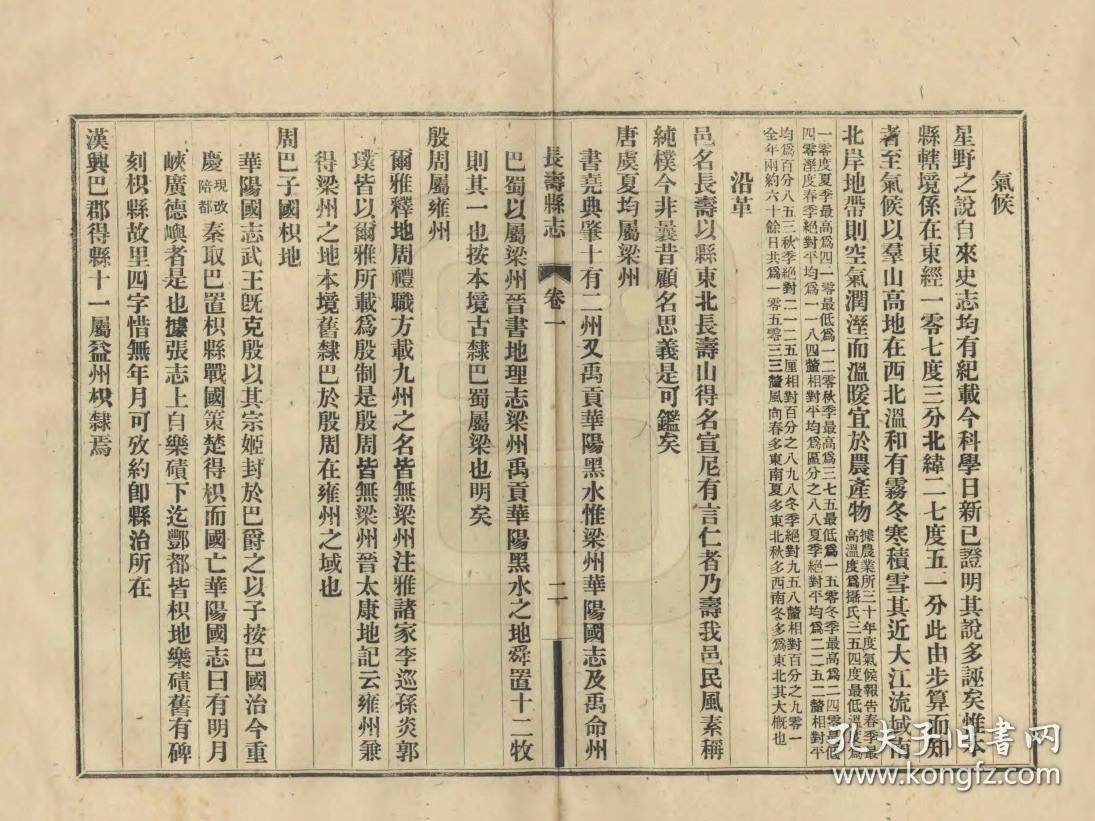 氣候
星野之說自來史志均有紀載今科學日新已證明其說多誣矣惟本
縣轄境係在東經一零七度三分北緯二七度五一分此由步算而知
者至氣候以羣山高地在西北溫和有霧冬寒積雪其近大江流域南
北岸地帶則空氣潤溼而溫暖宜於農產物
據農業所三十年度氣候報告春季最
高溫度爲攝氏三五四度最低溫度爲
一零度夏季最高爲四一零最低爲一二零秋季最高爲三七五最低爲一五零冬季最高爲二四零最低
四零溼度春季絕對平均爲一一八四釐相對平均爲區分之八八夏季絕對平均爲二二五二釐相對平
均爲百分八五三秋季絕對二一二五厘相對百分之八九八冬季絕對九五八釐相對百分之九零一
全年兩約六十餘日共爲一零五零三三釐風向春多東南夏多東北秋多西南冬多爲東北其大概也
沿革
邑名長壽以縣東北長壽山得名宣尼有言仁者乃壽我邑民風素稱
純樸今非曩昔顧名思義是可鑑矣
唐虞夏均屬梁州
書堯典肇十有二州又禹貢華陽黑水惟梁州華陽國志及禹命州
長壽縣志 卷一 二
巴蜀以屬梁州晉書地理志梁州禹貢華陽黑水之地舜置十二牧
則其一也按本境古隸巴蜀屬梁也明矣
殷周屬雍州
爾雅釋地周禮職方載九州之名皆無梁州注雅諸家李巡孫炎郭
璞皆以爾雅所載爲殷制是殷周皆無梁州晉太康地記云雍州兼
得梁州之地本境舊隸巴於殷周在雍州之域也
周巴子國枳地
華陽國志武王旣克殷以其宗姬封於巴爵之以子按巴國治今重
慶現改陪都秦取巴置枳縣戰國策楚得枳而國亡華陽國志曰有明月
峽廣德嶼者是也據張志上自樂磧下迄酆都皆枳地樂磧舊有碑
刻枳縣故里四字惜無年月可攷約卽縣治所在
漢興巴郡得縣十一屬益州枳隸焉
孔夫子旧书网
www.kongfz.com